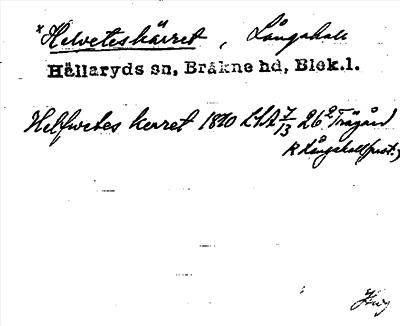 *Helveteskärret, Långahall
Hällaryds sn, Bräkne hd, Blek.l.
Helfwetes kerret 1820 LSA 7/13 26² Trägård
R Långahall prot.)